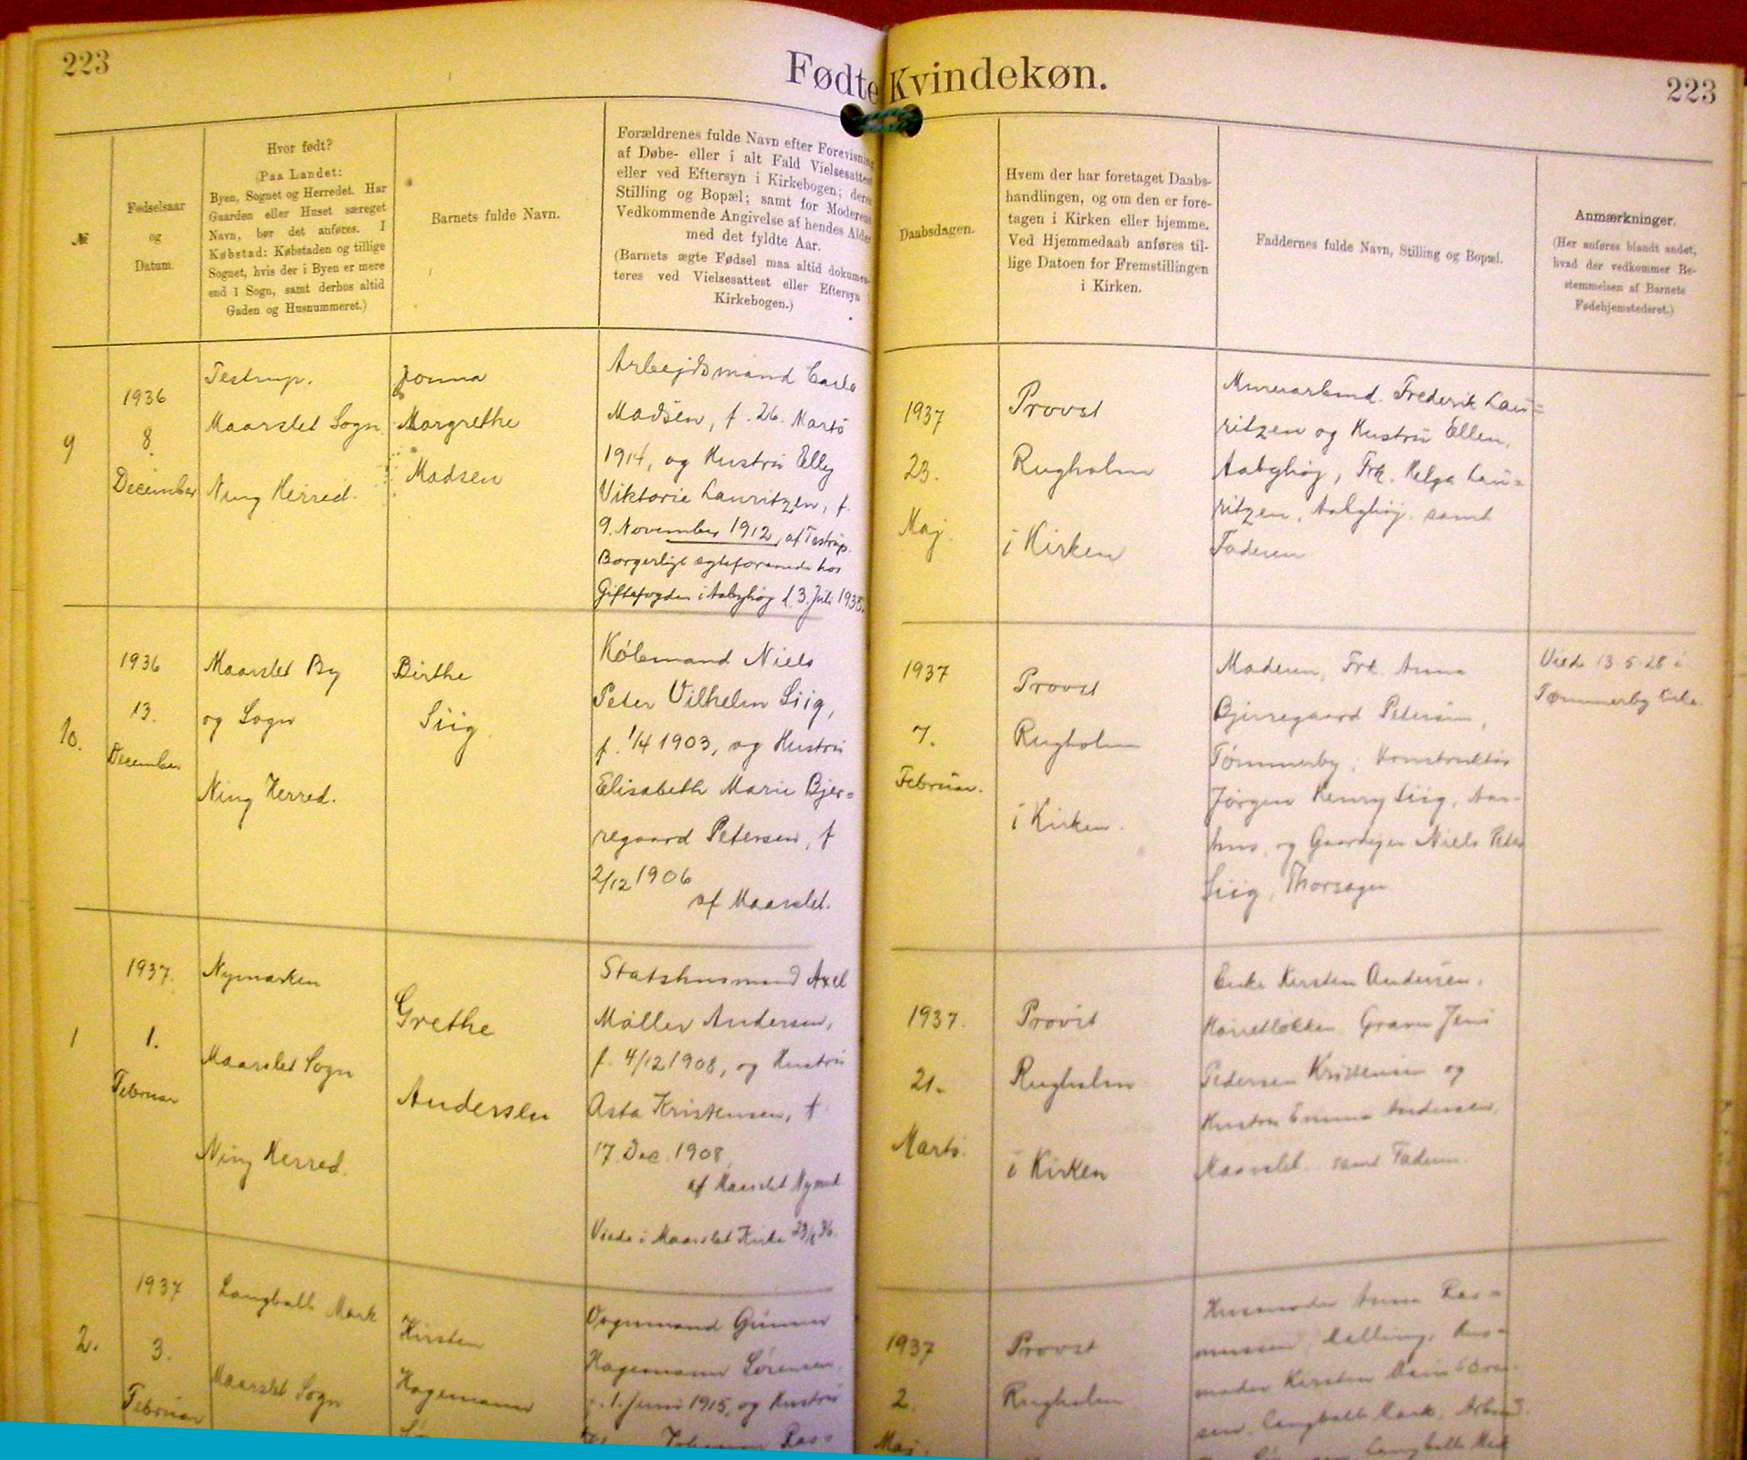 223
Fødte Kvindekøn.
223
№
Fødselsaar
og
Datum.
Hvor født?
(Paa Landet:
Byen, Sognet og Herredet. Har
Gaarden eller Huset særeget
Navn, bør det anføres. I
Købstad: Købstaden og tillige
Sognet, hvis der i Byen er mere
end 1 Sogn, samt derhos altid
Gaden og Husnummeret.)
Barnets fulde Navn.
Forældrenes fulde Navn efter Forevisning
af Døbe- eller i alt Fald Vielsesattest
eller ved Eftersyn i Kirkebogen; deres
Stilling og Bopæl; samt for Moderens
Vedkommende Angivelse af hendes Alder
med det fyldte Aar.
(Barnets ægte Fødsel maa altid dokumen-
teres ved Vielsesattest eller Eftersyn i
Kirkebogen.)
Daabsdagen.
Hvem der har foretaget Daabs-
handlingen, og om den er fore-
tagen i Kirken eller hjemme.
Ved Hjemmedaab anføres til-
lige Datoen for Fremstillingen
i Kirken.
Faddernes fulde Navn, Stilling og Bopæl.
Anmærkninger.
(Her anføres blandt andet,
hvad der vedkommer Be-
stemmelsen af Barnets
Fødehjemstederet.)
9
1936
8.
December
Testrup.
Maarslet Sogn
Ning Herred.
Jonna
Margrethe
Madsen
Arbejdsmand Carlo
Madsen, f. 26. Marts
1914, og Hustru Elly
Viktorie Lauritzen, f.
9. November 1912, af Testrup.
Borgerligt ægteforenede hos
Giftefogden i Aabyhøj d. 3. Juli 1935.
1937
23.
Maj.
Provst
Rugholm
i Kirken
Murerarbmd. Frederik Lau=
ritzen og Hustru Ellen,
Aabyhøj, Frk. Helga Lau=
ritzen, Aabyhøj samt
Faderen
10.
1936
13.
December
Maarslet By
og Sogn
Ning Herred.
Birthe
Siig.
Købmand Niels
Peter Vilhelm Siig,
f. 1/4 1903, og Hustru
Elisabeth Marie Bjer=
regaard Petersen, f
2/12 1906
af Maarslet.
1937
7.
Februar.
Provst
Rugholm
i Kirken.
Moderen, Frk. Anna
Bjerregaard Petersen,
Tømmerby, Konstruktør
Jørgen Henry Siig, Aar-
hus, og Gaardejer Niels Peter
Siig, Thorsager
Viede 13-5-28 i
Tømmerby Kirke.
1
1937.
1.
Februar
Nymarken
Maarslet Sogn
Ning Herred.
Grethe
Andersen
Statshusmand Axel
Møller Andersen,
f. 4/12 1908, og Hustru
Asta Kristensen, f.
17. Dec. 1908,
af Maarslet Nymark
Viede i Maarslet Kirke
1937.
21.
Marts.
Provst
Rugholm
i Kirken
Enke Kirsten Andersen,
Graver Jens
Pedersen Kristensen og
Hustru Emma Andersen,
Maarslet samt Faderen.
2.
1937
3.
Februar
Langballe Mark
Maarslet Sogn
Kirsten
Hagemann
Vognmand Gunner
Hagemann Sørensen,
1. Juni 1915, og Hustru
Johanne Ras=
1937
2.
Maj.
Provst
Rugholm
Husmoder Anna Ras=
mussen, Malling, Hus=
moder Kirsten
sen, Langballe Mark, Arbmd.
Langballe Mark